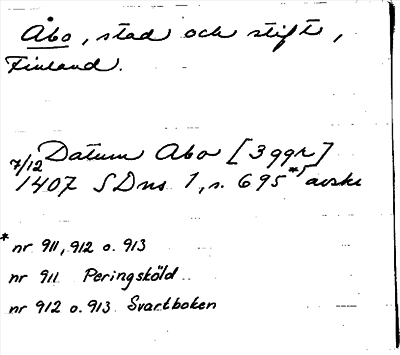 Åbo, stad och stift,
Finland.
7/12 Datum Abo [3 ggr]
1407 SDns 1, s. 695 *) avskr
* nr 911, 912 o. 913
nr 911 Peringsköld
nr 912 o. 913 Svartboken